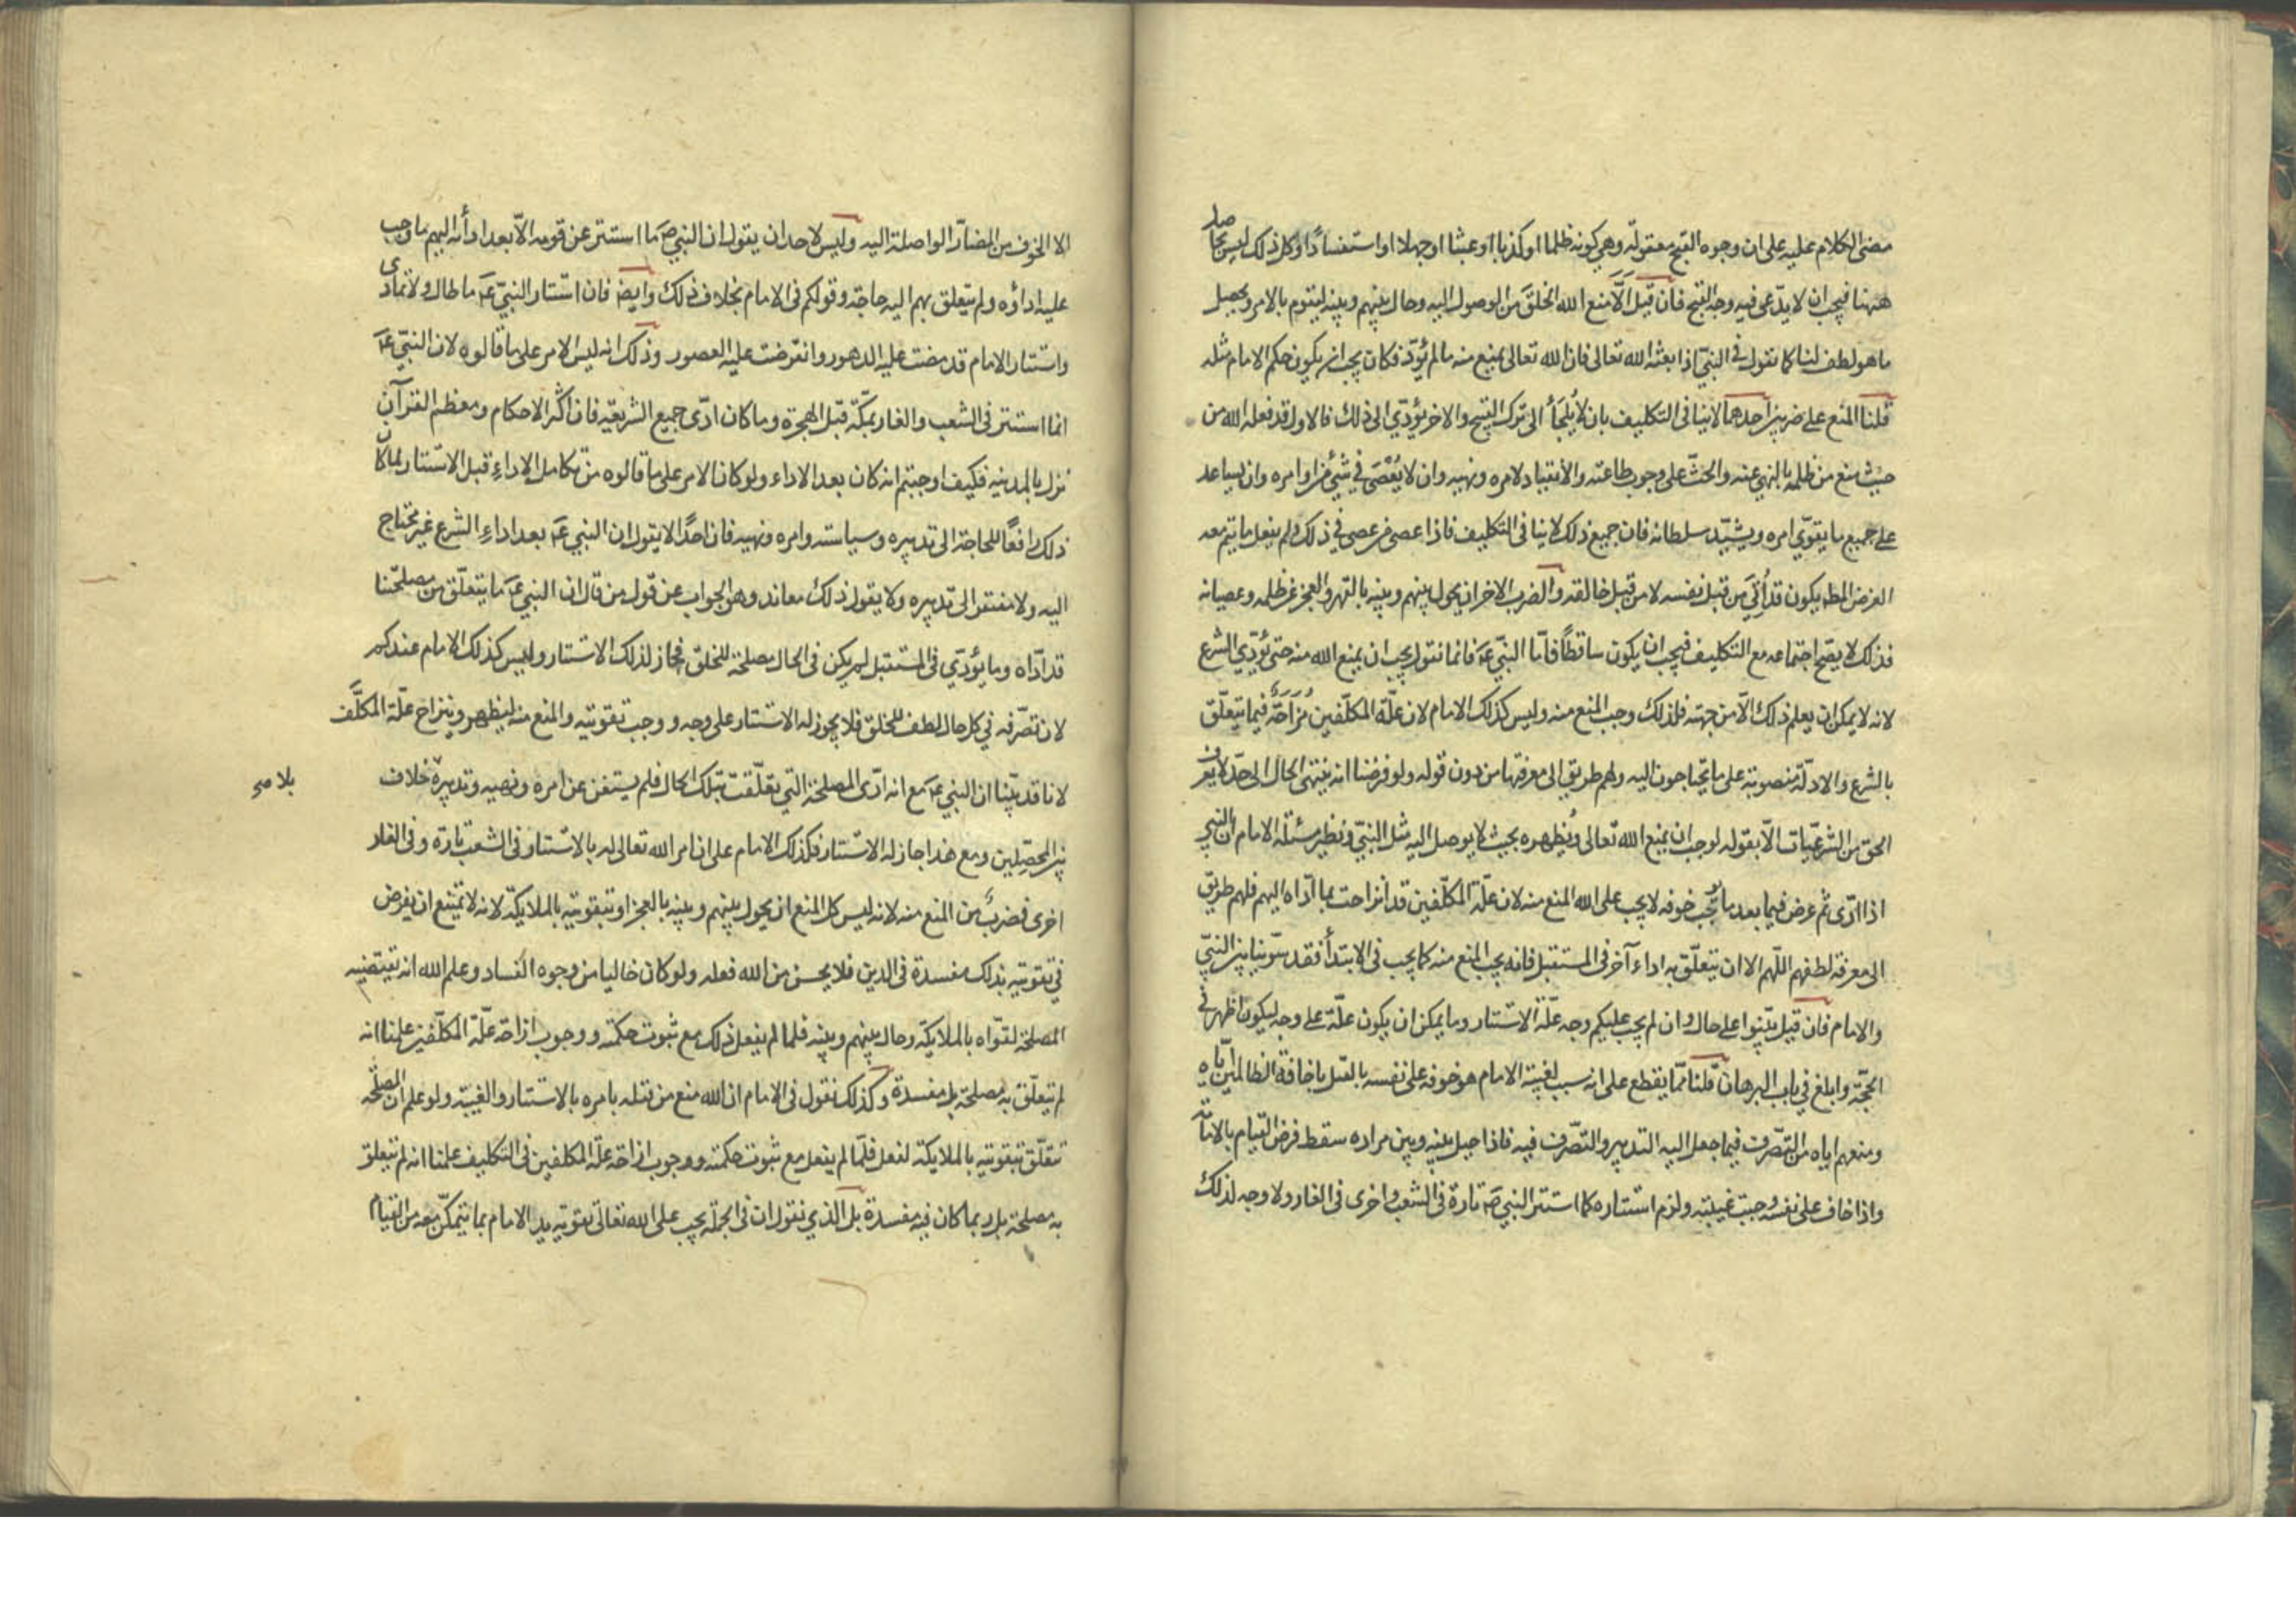 مضى الكلام عليه على ان وجوه القبح معقولة وهي كونه ظلما او كذبا او عبثا او جهلا او استفسادا وكل ذلك ليس بحاصل
ههنا فيجب ان لا يدعى فيه وجه القبح فان قيل الّا منع الله الخلق من الوصول اليه وحال بينهم وبينه ليقوم بالامر ويحصل
ما هو لطف لنا كما نقول في النبي اذا بعثه الله تعالى فان الله تعالى يمنع منه ما لم يؤدّ فكان يجب ان يكون حكم الامام مثله
قلنا المنع على ضربين احدهما لا ينافى التكليف بان لا يُلجَأ الى ترك القبيح والاخر يؤدّي الى ذلك فالاول قد فعله الله من
حيث منع من ظلمه بالنهي عنه والحثّ على وجوب طاعته والانقياد لامره ونهيه وان لا يُعْصَى في شئ من اوامره وان يساعد
على جميع ما يقوّي امره ويشيّد سلطانه فان جميع ذلك لا ينافى التكليف فاذا عصى من عصى في ذلك ولم يفعل ما يتم معه
الغرض المط يكون قد اُتِيَ من قبل نفسه لا من قبل خالقه والضرب الاخر ان يحول بينهم وبينه بالقهر والعجز عن ظلمه وعصيانه
فذلك لا يصح اجتماعه مع التكليف فيجب ان يكون ساقطاً فامّا النبي عم فانما نقول يجب ان يمنع الله منه حتى يؤدّي الشرع
لانه لا يمكن ان يعلم ذلك الّا من جهته فلذلك وجب المنع منه وليس كذلك الامام لان علّة المكلّفين مُزَاحَةٌ فيما يتعلّق
بالشرع والادلّة منصوبة على ما يحتاجون اليه ولهم طريق الى معرفتها من دون قوله ولو فرضنا انه ينتهى الحال الى حدّ لا يعرف
الحق من الشرعيّات الّا بقوله لوجب ان يمنع الله تعالى ويُظهره بحيث لا يوصل اليه مثل النبيّ ونظير مسئلة الامام ان النبي
اذا ادّى ثم عرض فيما بعد ما يوجب خوفه لا يجب على الله المنع منه لان علّة المكلّفين قد انزاحت بما ادّاه اليهم فلهم طريق
الى معرفة لطفهم اللّهم الا ان يتعلّق به اداء آخر فى المستقبل فانه يجب المنع منه كما يجب فى الابتدأ فقد سوّينا بين النبيّ
والامام فان قيل بيّنوا على حال وان لم يجب عليكم وجه علّة الاستتار وما يمكن ان يكون علّة على وجه ليكون اظهر في
الحجّة وابلغ في باب البرهان قلنا ممّا يقطع على انه سبب لغيبة الامام هو خوفه على نفسه بالقتل باخافة الظالمين ايّاه
ومنعهم اياه من التصّرف فيما جعل اليه التدبير والتصّرف فيه فاذا حيل بينه وبين مراده سقط فرض القيام بالامامة
واذا خاف على نفسه وجبت غيبته ولزم استتاره كما استتر النبي ص تارة فى الشعب واخرى فى الغار ولا وجه لذلك
الا الخوف من المضارّ الواصلة اليه وليس لاحد ان يقول ان النبي ص ما استتر عن قومه الّا بعد ادائه اليهم ما وجب
عليه اداؤه ولم يتعلق بهم اليه حاجة وقولكم فى الامام بخلاف ذلك وايض فان استتار النبيّ عم ما طال ولا تمادى
واستتار الامام قد مضت عليه الدهور وانقرضت عليه العصور وذلك انه ليس الامر على ما قالوه لان النبيّ عم
انما استتر فى الشعب والغار بمكّة قبل الهجرة وما كان ادّى جميع الشريعة فان اكثر الاحكام ومعظم القرآن
نزل بالمدينه فكيف اوجبتم انه كان بعد الاداء ولو كان الامر على ما قالوه من تكامل الاداء قبل الاستتار لما كان
ذلك رافعاً للحاجة الى تدبيره وسياسته وامره ونهيه فان احدًا لا يقول ان النبي عم بعد اداء الشرع غير محتاج
اليه ولا مفتقر الى تدبيره ولا يقول ذلك معاند وهو الجواب عن قول من قال ان النبي عم ما يتعلّق من مصلحتنا
قد ادّاه وما يؤدّي فى المستقبل لم يكن فى الحال مصلحة للخلق فجاز لذلك الاستتار وليس كذلك الامام عندكم
لان تصّرفه في كل حال لطف للخلق فلا يجوز له الاستتار على وجه ووجب تقويته والمنع منه ليظهر وينزاح علّة المكلَّف
لانا قد بيّنا ان النبي عم مع انه ادّى المصلحة التي تعلّقت بتلك الحال فلم يستغن عن امره ونهيه وتدبيره بلا خلاف
بين المحصّلين ومع هذا جاز له الاستتار فكذلك الامام على ان امر الله تعالى له بالاستتار فى الشعب تارة وفى الغار
اخرى فضربٌ من المنع منه لانه ليس كل المنع ان يحول بينهم وبينه بالعجز او بتقويته بالملايكة لانه لا يمتنع ان يفرض
في تقويته بذلك مفسدة فى الدين فلا يحسن من الله فعله ولو كان خاليا من وجوه الفساد وعلم الله انه يقتضيه
المصلحة لقوّاه بالملايكة وحال بينهم وبينه فلما لم يفعل ذلك مع ثبوت حكمته ووجوب ازاحة علّة المكلّفين علمنا انه
لم يتعلّق به مصلحة بل مفسدة وكذلك نقول فى الامام ان الله منع من قتله بامره بالاستتار والغيبة ولو علم ان المصلحة
تتعلّق بتقويته بالملايكة لفعل فلمّا لم يفعل مع ثبوت حكمته ووجوب ازاحة علّة المكلفين فى التكليف علمنا انه لم يتعلق
به مصلحة بل ربما كان فيه مفسدة بل الذي نقول ان فى الجملة يجب على الله تعالى تقوية يد الامام بما يتمكّن معه من القيام